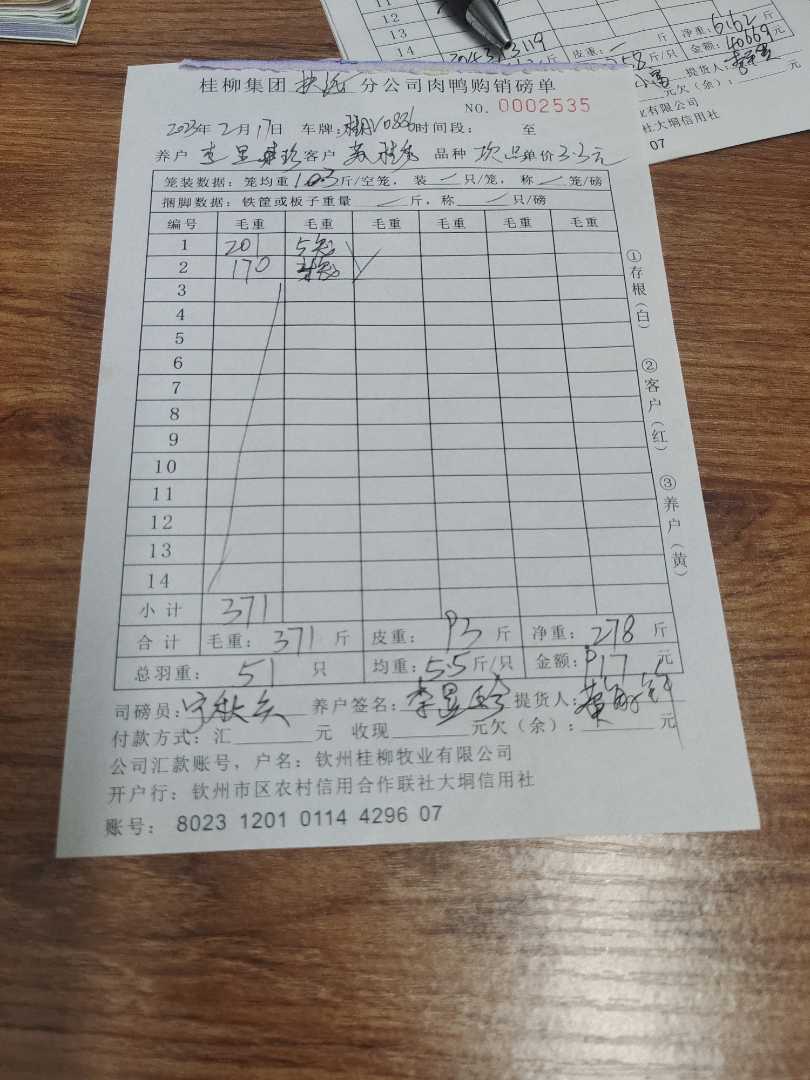 11
12
13
14 2043 3119
皮重: 斤 净重: 6162 斤
58 斤/只 金额: 40669 元
提货人:
元欠(余): 元
业有限公司
社大垌信用社
07
桂柳集团 分公司肉鸭购销磅单
NO. 0002535
2023年2月17日 车牌: 0886 时间段: 至
养户 客户 品种 次品 单价 3.3元
笼装数据: 笼均重 10.3 斤/空笼, 装 / 只/笼, 称 / 笼/磅
捆脚数据: 铁筐或板子重量 / 斤, 称 / 只/磅
编号 毛重 毛重 毛重 毛重 毛重 毛重
1 201 5笼
2 170 笼
3
4
5
6
7
8
9
10
11
12
13
14
小计 371
合计 毛重: 371 斤 皮重: 93 斤 净重: 278 斤
总羽重: 51 只 均重: 5.5 斤/只 金额: 917 元
司磅员: 养户签名: 提货人:
付款方式: 汇 元 收现 元欠(余): 元
公司汇款账号, 户名: 钦州桂柳牧业有限公司
开户行: 钦州市区农村信用合作联社大垌信用社
账号: 8023 1201 0114 4296 07
①存根(白) ②客户(红) ③养户(黄)